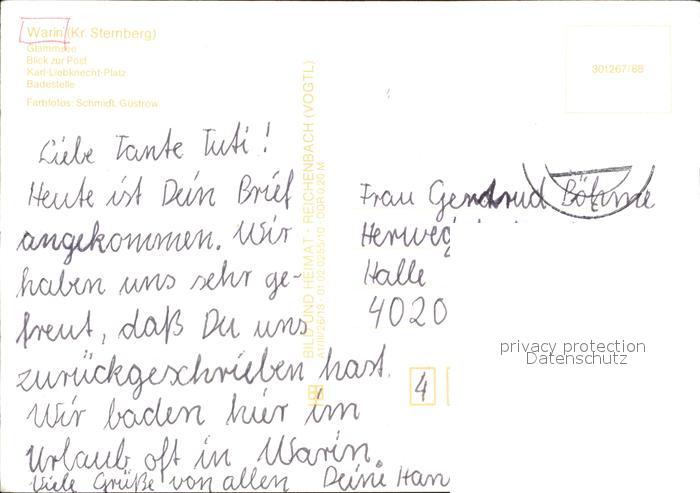 Warin (Kr. Sternberg)
Glammsee
Blick zur Post
Karl-Liebknecht-Platz
Badestelle
Farbfotos: Schmidt, Güstrow
Liebe Tante Tuti!
Heute ist Dein Brief
angekommen. Wir
haben uns sehr ge-
freut, daß Du uns
zurückgeschrieben hast.
Wir baden hier im
Urlaub oft in Warin.
Viele Grüße von allen Deine Han
BILD UND HEIMAT · REICHENBACH (VOGTL)
A1/III/26/13 01 02 0255/10 DDR 0,20 M
301267/88
Frau Gertrud Böhme
Herweg
Halle
4020
4
privacy protection
Datenschutz